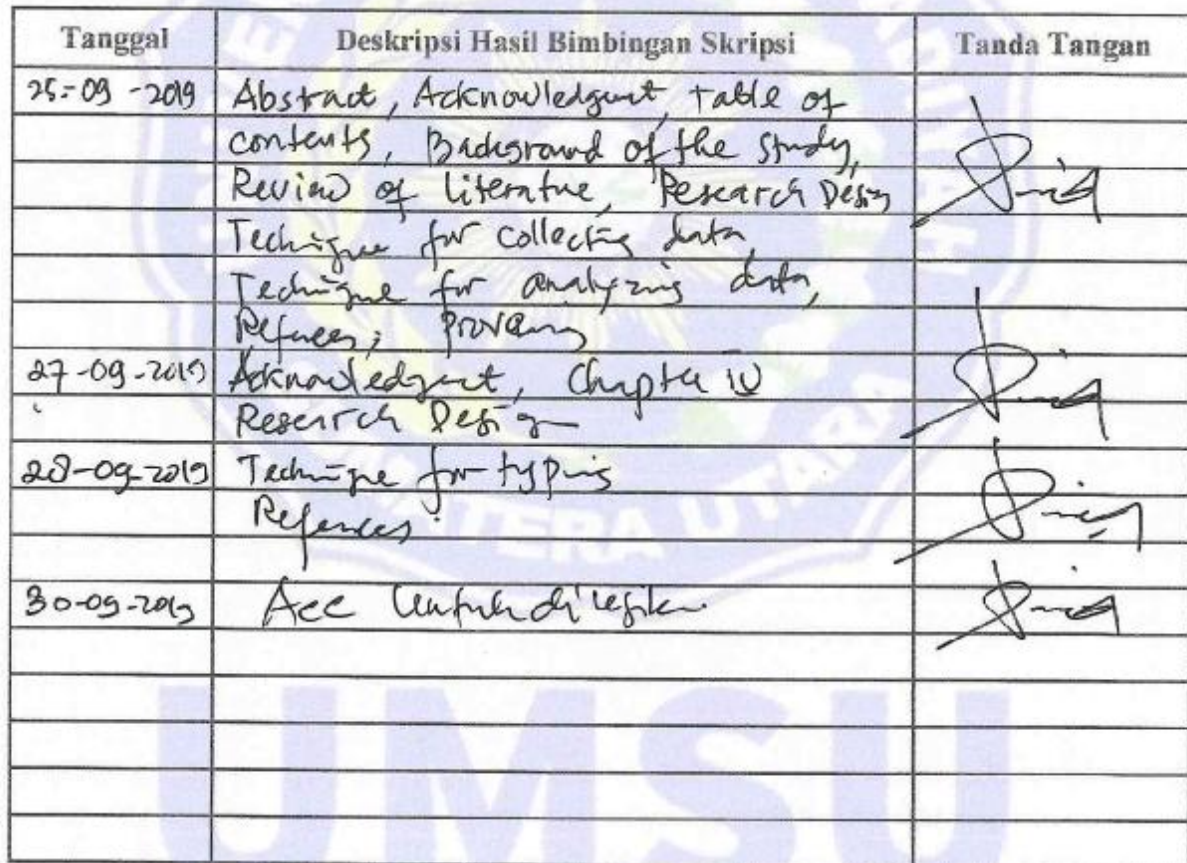 Tanggal Deskripsi Hasil Bimbingan Skripsi Tanda Tangan
25-09-2019 Abstract, Acknowledgment, table of
contents, Background of the study,
Review of literature, Research Design
Technique for collecting data,
Technique for analyzing data,
References;
27-09-2019 Acknowledgment, Chapter IV
Research Design
28-09-2019 Technique for typing
References.
30-09-2019 Acc untuk di
SUMATERA UTARA
UMSU